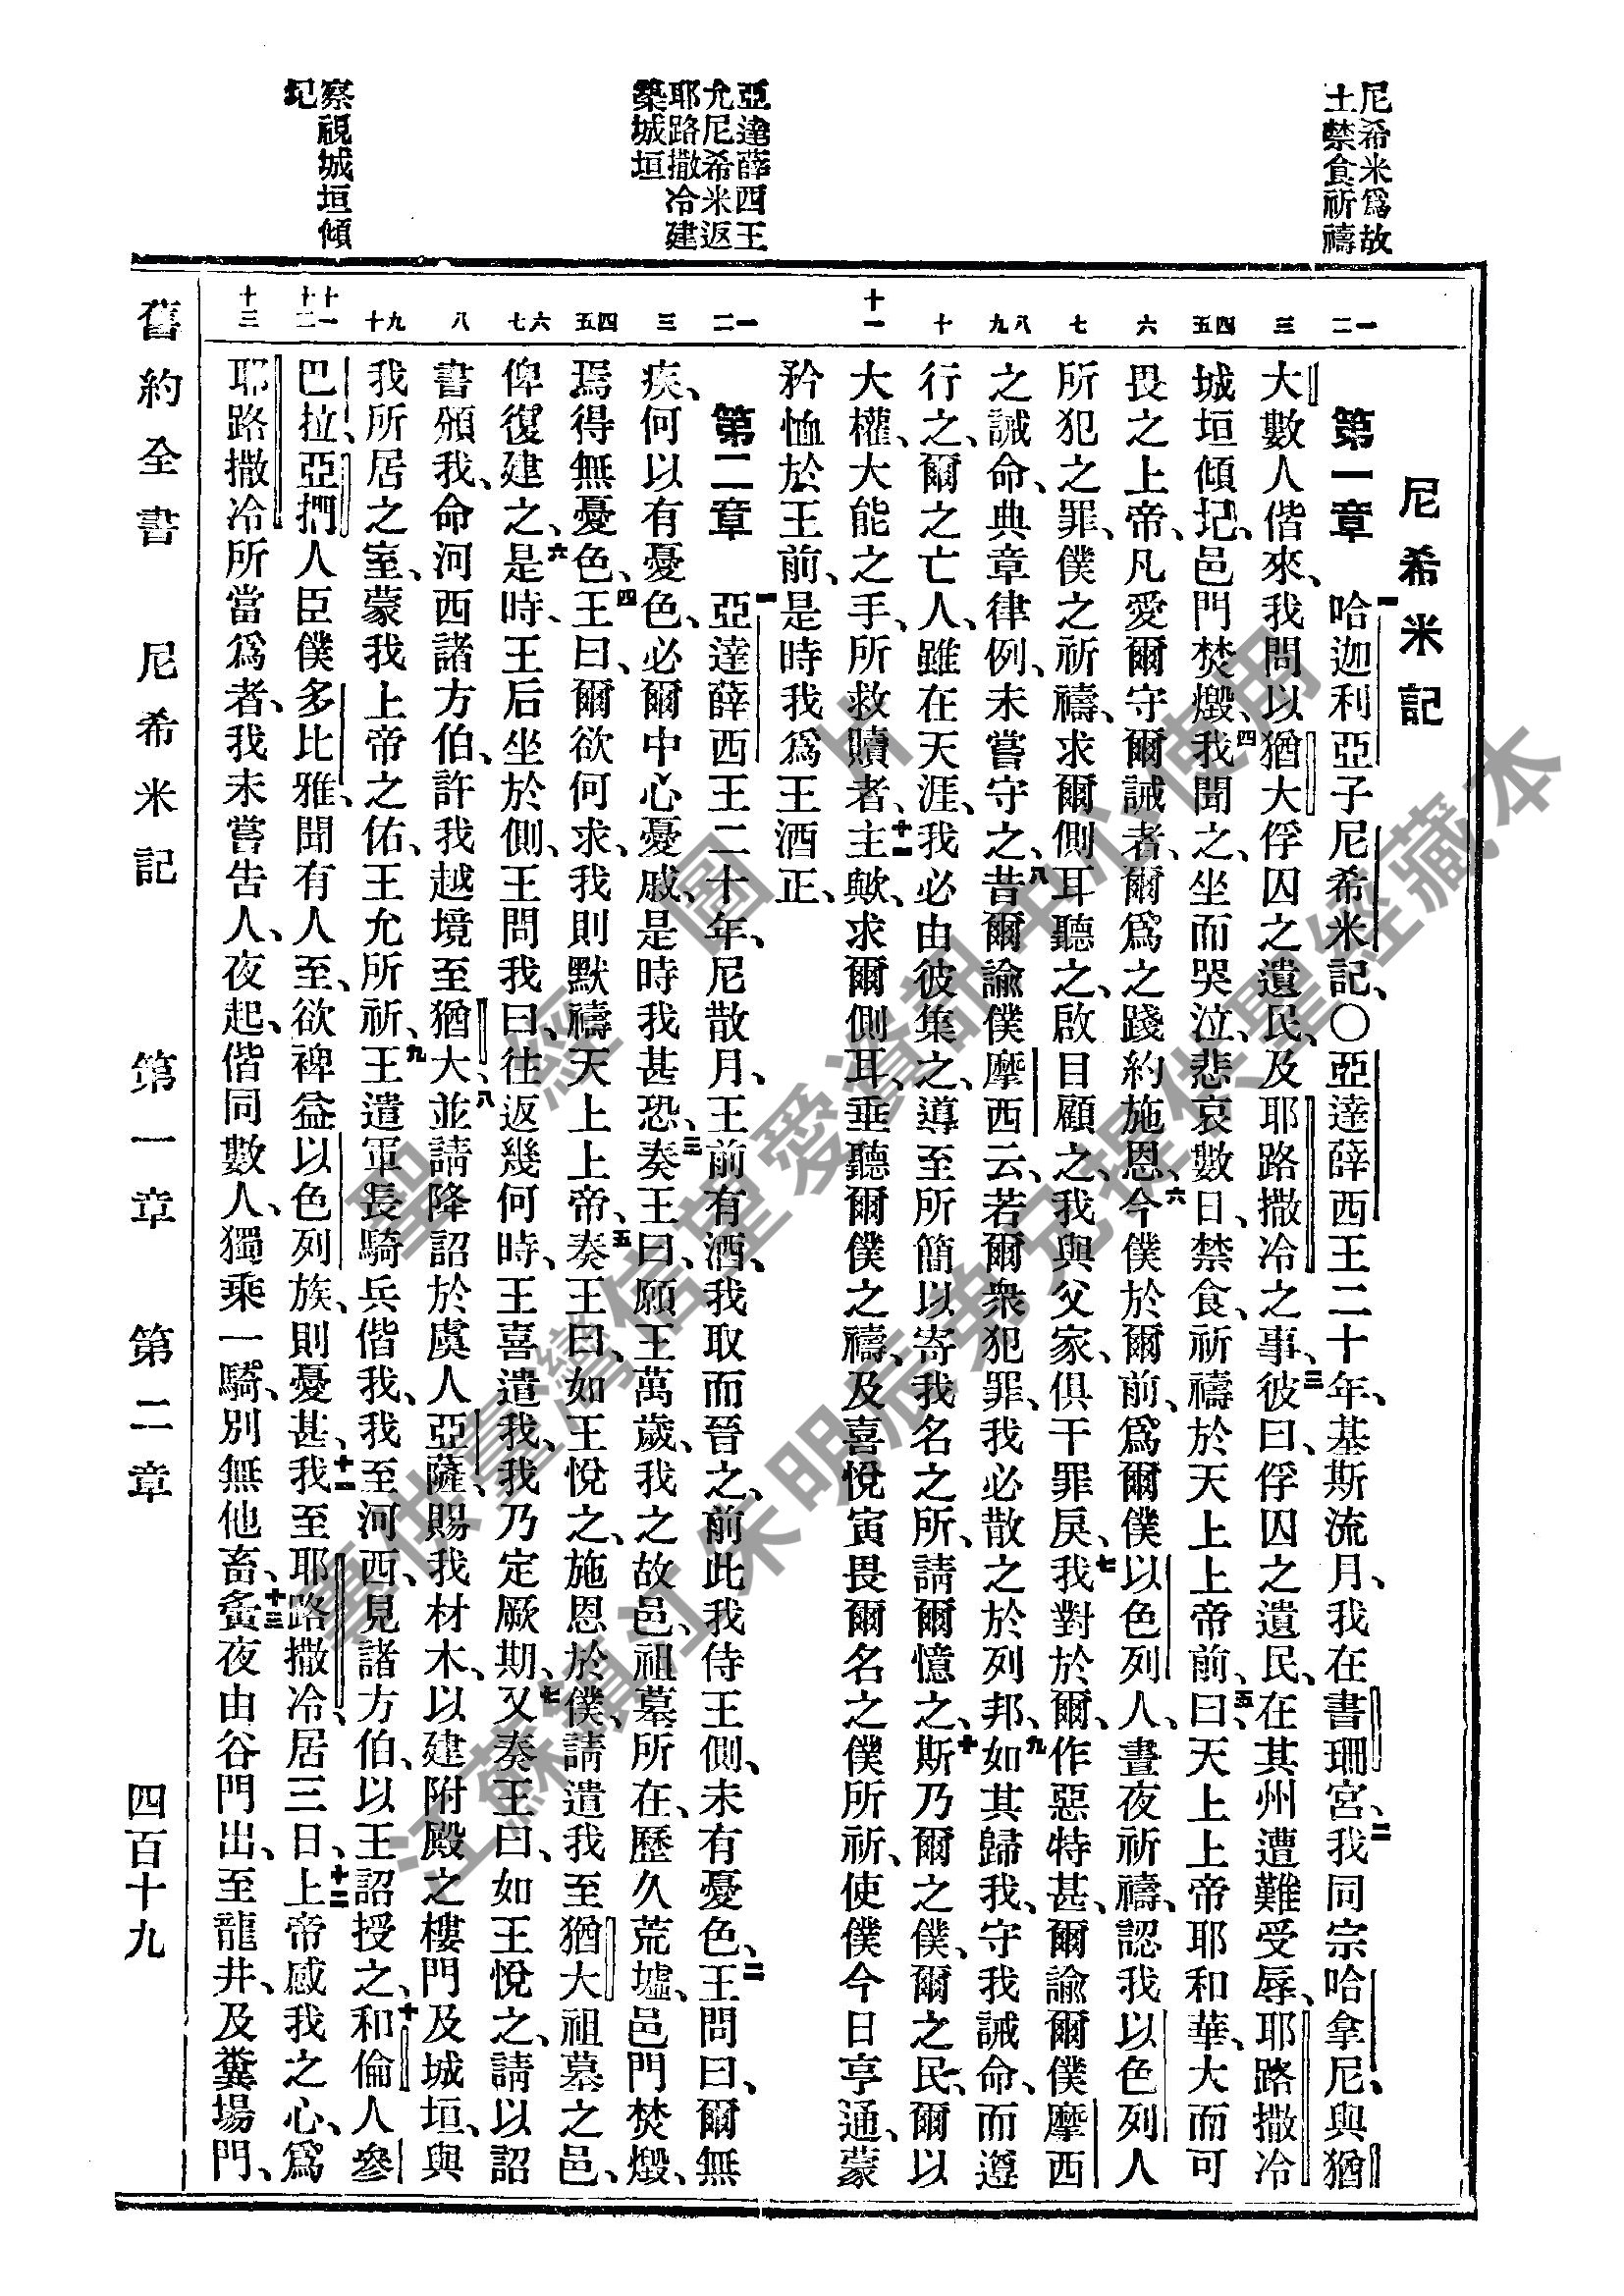 尼希米爲故
土禁食祈禱
亞達薛西王
允尼希米返
耶路撒冷建
築城垣
察視城垣傾
圮
一二
三
四五
六
七
八九
十
十一
一二
三
四五
六七
八
九十
十一十二
十三
尼希米記
第一章 一哈迦利亞子尼希米記、〇亞達薛西王二十年、基斯流月、我在書珊宮、二我同宗哈拿尼、與猶
大數人偕來、我問以猶大俘囚之遺民、及耶路撒冷之事、三彼曰、俘囚之遺民、在其州遭難受辱、耶路撒冷
城垣傾圮、邑門焚燬、四我聞之、坐而哭泣、悲哀數日、禁食、祈禱於天上上帝前、五曰、天上上帝耶和華、大而可
畏之上帝、凡愛爾守爾誡者、爾爲之踐約施恩、六今僕於爾前、爲爾僕以色列人、晝夜祈禱、認我以色列人
所犯之罪、僕之祈禱、求爾側耳聽之、啟目顧之、我與父家、俱干罪戾、七我對於爾、作惡特甚、爾諭爾僕摩西
之誡命、典章律例、未嘗守之、八昔爾諭僕摩西云、若爾衆犯罪、我必散之於列邦、九如其歸我、守我誡命、而遵
行之、爾之亡人、雖在天涯、我必由彼集之、導至所簡以寄我名之所、請爾憶之、十斯乃爾之僕、爾之民、爾以
大權、大能之手、所救贖者、十一主歟、求爾側耳、垂聽爾僕之禱、及喜悅寅畏爾名之僕所祈、使僕今日亨通、蒙
矜恤於王前、是時我爲王酒正、
第二章 一亞達薛西王二十年、尼散月、王前有酒、我取而晉之、前此我侍王側、未有憂色、二王問曰、爾無
疾、何以有憂色、必爾中心憂戚、是時我甚恐、三奏王曰、願王萬歲、我之故邑、祖墓所在、歷久荒墟、邑門焚燬、
焉得無憂色、四王曰、爾欲何求、我則默禱天上上帝、五奏王曰、如王悅之、施恩於僕、請遣我至猶大祖墓之邑、
俾復建之、六是時、王后坐於側、王問我曰、往返幾何時、王喜遣我、我乃定厥期、七又奏王曰、如王悅之、請以詔
書頒我、命河西諸方伯、許我越境至猶大、八並請降詔於虞人亞薩、賜我材木、以建附殿之樓門及城垣、與
我所居之室、蒙我上帝之佑、王允所祈、九王遣軍長騎兵偕我、我至河西、見諸方伯、以王詔授之、十和倫人參
巴拉、亞捫人臣僕多比雅、聞有人至、欲裨益以色列族、則憂甚、十一我至耶路撒冷、居三日、十二上帝感我之心、爲
耶路撒冷所當爲者、我未嘗告人、夜起、偕同數人、獨乘一騎、別無他畜、十三夤夜由谷門出、至龍井、及糞場門、
舊約全書 尼希米記 第一章 第二章 四百十九
聖經圖片
臺供臺灣信望愛資訊中心使用
江蘇鎮江朱明辰弟兄提供聖經藏本